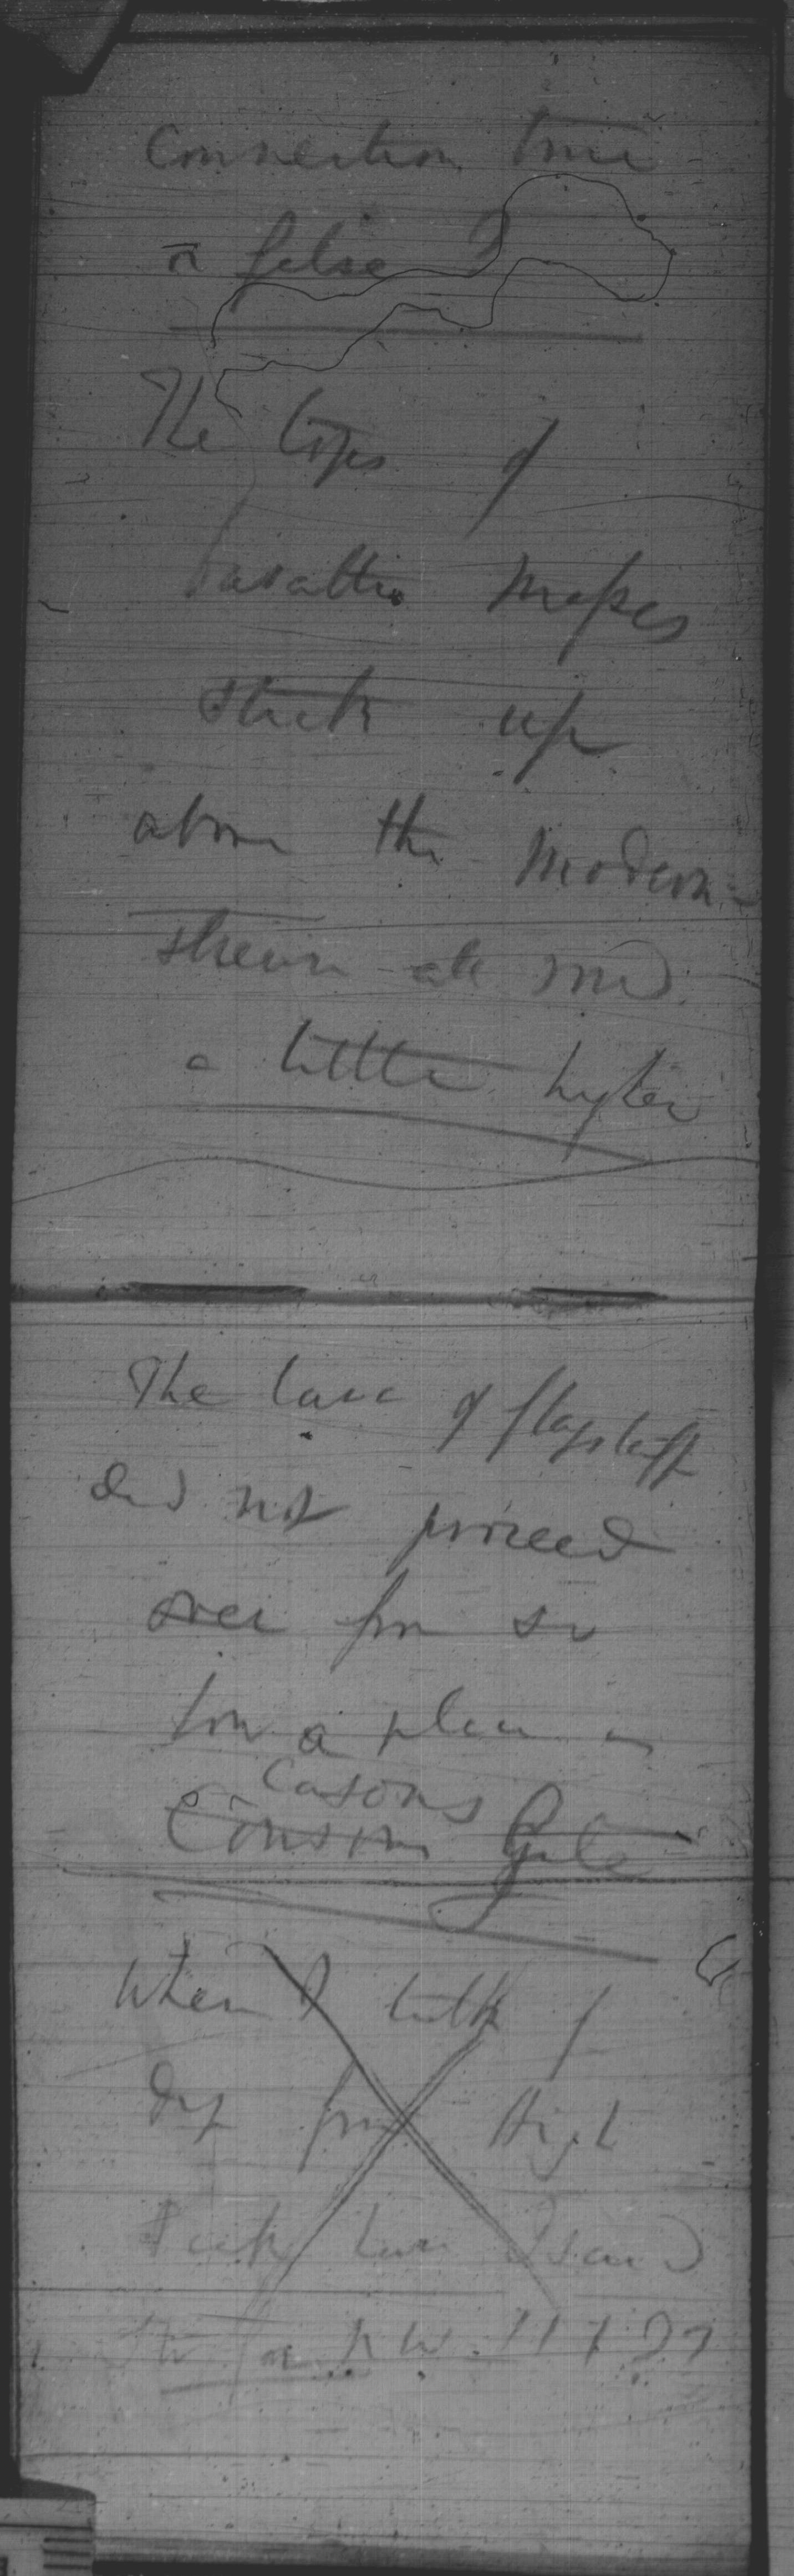 Connection true
or false?
The tops of
basaltic masses
stick up
above the modern
stream all mud
a little higher
The lava of flagstaff
did not proceed
over from so
low a place as
Casons
Consom Gate
When I talk of
dip from High
Peak